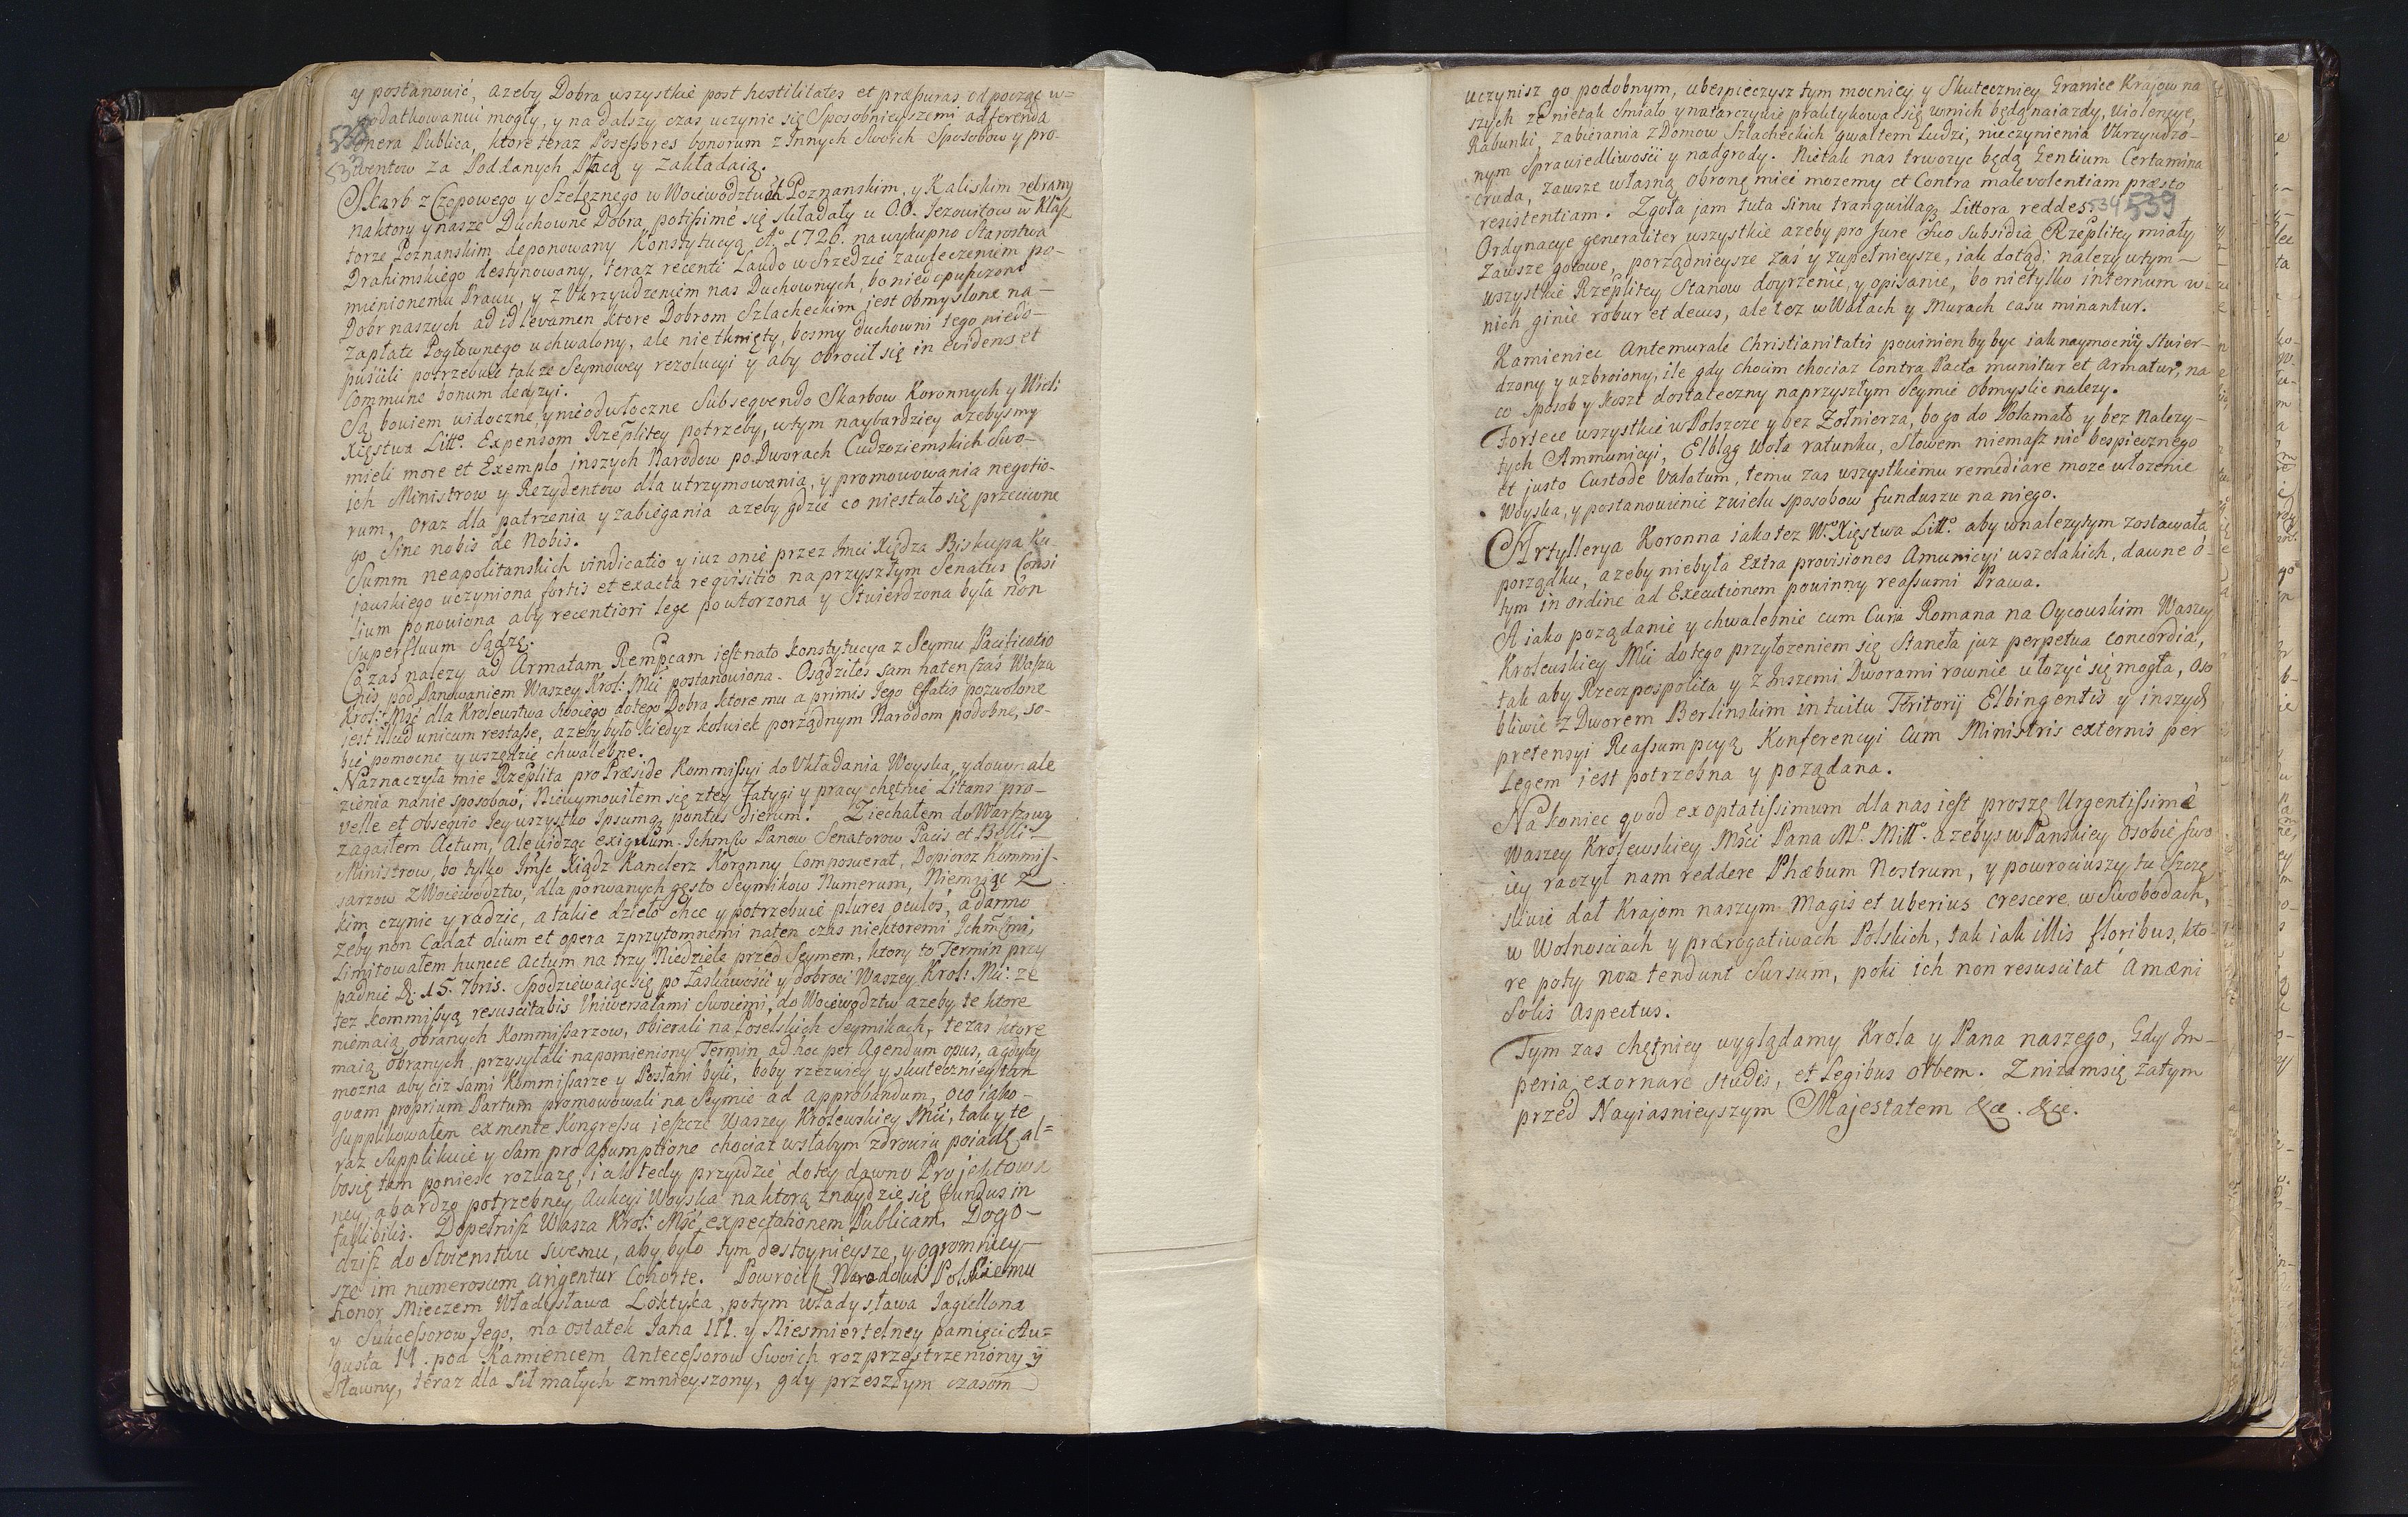 y postanowić, azeby Dobra wszystkie post hostilitates et præssuras odpocząc w=
podatkowaniu mogły, y na dalszy czas uczynic się Sposobnieyszemi ad ferenda
538
onera Publica, ktore teraz Possessores bonorum z Innych Swoich Sposobow y pro-
533
wentow za Poddanych Płacą y zakładaią.
Skarb z Czopowego y Szelęznego w Woiewodztwach Poznanskim, y Kaliskim zebrany
na ktory y nasze Duchowne Dobra potissimé się składały u O.O. Iezouitow w Klasz
torze Poznanskim deponowany Konstytucyą Aº 1726. na wykupno Starostwa
Drahimskiego destynowany, teraz recenti Laudo w Srzedzie zawleczeniem po-
mienionemu Prawu, y z Vkrzywdzeniem nas Duchownych, bo nie odpuszczono
Dobr naszych ad id levamen ktore Dobrom Szlacheckim jest obmyslone na-
zapłatę Pogłownego uchwalony, ale nietknięty, bosmy Duchowni tego niedo-
puscili potrzebuie takze Seymowey rezolucyi y aby obrocił się in evidens et
Commune bonum decyzyi.
Są bowiem widoczne, y nieodwłoczne Subsequendo Skarbow Koronnych y Wiel:
Xięstwa Littº. Expensom Rzeplitey potrzeby, w tym naybardziey azebysmy
mieli more et Exemplo inszych Narodow po Dworach Cudzoziemskich Swo-
ich Ministrow y Rezydentow dla utrzymowania, y promowowania negotio-
rum, oraz dla patrzenia y zabiegania azeby gdzie co niestało się przeciwne
go Sine nobis de Nobis.
Summ neapolitanskich vindicatio y iuz onie przez Imci Xiędza Biskupa Ku-
jawskiego uczyniona fortis et exacta requisitio na przyszłym Senatus Consi
lium ponowiona aby recentiori lege powtorzona y Stwierdzona była non
Superfluum Sądzę.
Co zas nalezy ad Armatam Rempcam iest na to konstytucya z Seymu Pacificatio
nis pod Panowaniem Waszey Krol: Mci postanowiona. Osądziłes sam haten szas Wasza
Krol: Mść dla Krolewstwa Swoiego do tego Dobra ktoremu a primis Iego effatis pozwolone
jest illud unicum restasse, azeby było kiedyz kolwiek porządnym Narodom podobne, so-
bie pomocne y wszędzie chwalebne.
Naznaczyła mie Rzeplita pro Præside Kommissyi do Vkładania Woyska, y dowynale
zienia nanie sposobow, Niewymowiłem się z tey fatygi y pracy chętnie Litans pro-
velle et obsequio Iey wszystko Ipsumq pontus Dierum. Ziechałem do Warszawy
zagaiłem Actum, Ale widząc exiguum Ichmsw Panow Senatorow Pacis et Belli
Ministrow, bo tylko Imsc Xiądz Kanclerz Koronny Composuerat, Dopieroz Kommis-
sarzow z Woiewodztw, dla porwanych gęsto Seymikow Numerum, Niemaiąc z
kim czynic y radzic, a takie dzieło chce y potrzebuie plures oculos, a darmo
zeby non Cadat olium et opera z przytomnemi naten czas niektoremi Ichmcmi,
Limitowałem huncce Actum na trzy Niedziele przed Seymem, ktory to Termin przy
padnie D: 15. 7bris. Spodziewaiąc się po Łaskawosci y dobroci Waszey Krol: Mci: ze
tez Kommissyą resuscitabis Vniwersałami Swoiemi, do Woiewodztw azeby te ktore
niemaią obranych Kommissarzow, obierali na Poselskich Seymikach, te zas ktore
maią obranych przysyłali na pomieniony Termin, ad hoc per Agendum opus, a gdyby
mozna aby ciz sami Kommissarze y Posłani byli, boby rzezwiey y skuteczniey tan
quam proprium Partum promowowali na Seymie ad approbandum, o co iako-
Supplikowałem ex mente Kongressu ieszcze Waszey Krolewskiey Mci, tak y te
raz Supplikuie y Sam pro assumptione chociaz w słabym zdrowiu poiadę al=
bo się tam poniesc rozkazę, iak tedy przyidzie do tey dawno Projektowa
ney a bardzo potrzebney Aukcyi Woyska na ktorą znaydzie się fundus in
fallibilis. Dopełnisz Wasza Krol: Mść expectationem Publicam. Dogo-
dzisz do Stoienstwu swemu, aby było tym dostoynieysze, y ogromniey-
sze im numerosiem cingentur Cohorte. Powrocisz Narodowi Polskiemu
honor Mieczem Władysława Łoktyka, potym Władysława Iagiellona
y Sukcessorow Iego, na ostatek Iana III. y Niesmiertelney pamięci Au=
gusta II. pod Kamiencem Antecessorow Swoich rozprzestrzeniony y
sławny, teraz dla Sił małych zmnieyszony, gdy przeszłym czasom
uczynisz go podobnym, ubespieczysz tym mocniey y Skuteczniey Granice Krajow na
szych ze nietak smiało y natarczywie praktykowac się w nich będą naiazdy, violencye,
Rabunki, zabierania z Domow Szlacheckich gwałtem Ludzi, nieczynienia Vkrzywdzo-
nym Sprawiedliwosci y nadgrody. Nietak nas trwozyc będą Gentium Certamina
cruda, zawsze własną obronę miec mozemy et Contra malevolentiam præsto
resistentiam. Zgoła jam tuta sinu tranquillaq Littora reddes. 534 539
Ordynacye generaliter wszystkie azeby pro Iure Suo Subsidia Rzeplitey miały
zawsze gotowe, porządnieysze zas y zupełnieysze, iak dotąd: nalezy w tym
wszystkie Rzeplitey Stanow doyrzenie, y opisanie, bo nietylko internum w
nich ginie robur et decus, ale tez w Wałach y Murach casu minantur.
Kamieniec Antemurale Christianitatis powinien by byc iak naymocniy stwier-
dzony y uzbroiony, ile gdy Chocim chociaz Contra Pacta munitur et armatur, na
co sposob y koszt dostateczny na przyszłym Seymie obmyslic nalezy.
Fortece wszystkie w Polszcze y bez Zołnierza, bo go do Połamało y bez Nalezy-
tych Ammunicyi, Elbląg woła ratunku, Słowem niemasz nic bespiecznego
et justo Custode Valatum, temu zas wszystkiemu remediare moze włozenie
Woyska, y postanowienie z wielu sposobow funduszu na niego.
Artyllerya Koronna iako tez Wº. Xięstwa Littº. aby w nalezytym zostawała
porządku, azeby niebyła Extra provisiones Amunicyi wszelakich, dawne o-
tym in ordine ad Executionem powinny reassumi Prawa.
A iako poządanie y chwalebnie cum Curia Romana na Oycowskim Waszey
Krolewskiey Mci do tego przyłozeniem się Staneła juz perpetua Concordia,
tak aby Rzeczpospolita y z Inszemi Dworami rownie ułozyć się mogła, oso
bliwie z Dworem Berlinskim intuitu Territorij Elbingentis y inszych
pretensyi Reassumpcyą Konferencyi Cum Ministris externis per
Legem iest potrzebna y poządana.
Na koniec qvod exoptatissimum dla nas iest proszę Urgentissimé
Waszey Krolewskiey Msci Pana Mº. Mittº. azebys w Panskiey osobie swo
iey raczył nam reddere Phæbum Nostrum, y powrociwszy tu szczę
sliwie dał Krajom naszym Magis et uberius crescere, w Swobodach,
w Wolnosciach y prærogatiwach Polskich, tak iak illis floribus, kto
re poty non tendunt sursum, poki ich non resuscitat Amæni
Solis aspectus.
Tym zas chętniey wyglądamy Krola y Pana naszego, Gdy Im-
peria exornare studes, et Legibus orbem. Znizam się zatym
przed Nayiasnieyszym Majestatem &æ. &æ.